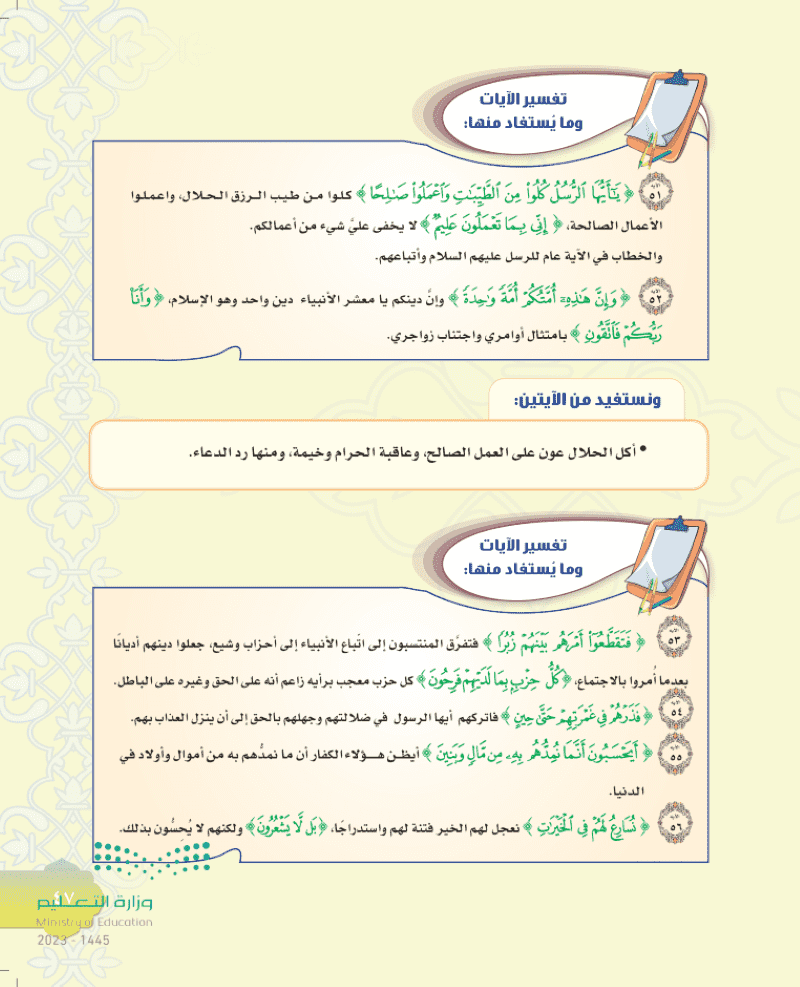 تفسير الآيات
وما يُستفاد منها:
الآية ٥١ ﴿ يَٰٓأَيُّهَا ٱلرُّسُلُ كُلُوا۟ مِنَ ٱلطَّيِّبَٰتِ وَٱعْمَلُوا۟ صَٰلِحًا ﴾ كلوا من طيب الرزق الحلال، واعملوا
الأعمال الصالحة، ﴿ إِنِّى بِمَا تَعْمَلُونَ عَلِيمٌ ﴾ لا يخفى عليَّ شيء من أعمالكم.
والخطاب في الآية عام للرسل عليهم السلام وأتباعهم.
الآية ٥٢ ﴿ وَإِنَّ هَٰذِهِۦٓ أُمَّتُكُمْ أُمَّةً وَٰحِدَةً ﴾ وإنَّ دينكم يا معشر الأنبياء دين واحد وهو الإسلام، ﴿ وَأَنَا۠
رَبُّكُمْ فَٱتَّقُونِ ﴾ بامتثال أوامري واجتناب زواجري.
ونستفيد من الآيتين:
• أكل الحلال عون على العمل الصالح، وعاقبة الحرام وخيمة، ومنها رد الدعاء.
تفسير الآيات
وما يُستفاد منها:
الآية ٥٣ ﴿ فَتَقَطَّعُوٓا۟ أَمْرَهُم بَيْنَهُمْ زُبُرًا ﴾ فتفرَّق المنتسبون إلى اتِّباع الأنبياء إلى أحزاب وشيع، جعلوا دينهم أديانًا
بعدما أُمروا بالاجتماع، ﴿كُلُّ حِزْبٍۭ بِمَا لَدَيْهِمْ فَرِحُونَ﴾ كل حزب معجب برأيه زاعم أنه على الحق وغيره على الباطل.
الآية ٥٤ ﴿ فَذَرْهُمْ فِى غَمْرَتِهِمْ حَتَّىٰ حِينٍ ﴾ فاتركهم أيها الرسول في ضلالتهم وجهلهم بالحق إلى أن ينزل العذاب بهم.
الآية ٥٥ ﴿ أَيَحْسَبُونَ أَنَّمَا نُمِدُّهُم بِهِۦ مِن مَّالٍ وَبَنِينَ ﴾ أيظن هؤلاء الكفار أن ما نمدُّهم به من أموال وأولاد في
الدنيا.
الآية ٥٦ ﴿ نُسَارِعُ لَهُمْ فِى ٱلْخَيْرَٰتِ ﴾ نعجل لهم الخير فتنة لهم واستدراجًا، ﴿بَل لَّا يَشْعُرُونَ﴾ ولكنهم لا يُحِسُّون بذلك.
٤٧
وزارة التعليم
Ministry of Education
2023 - 1445